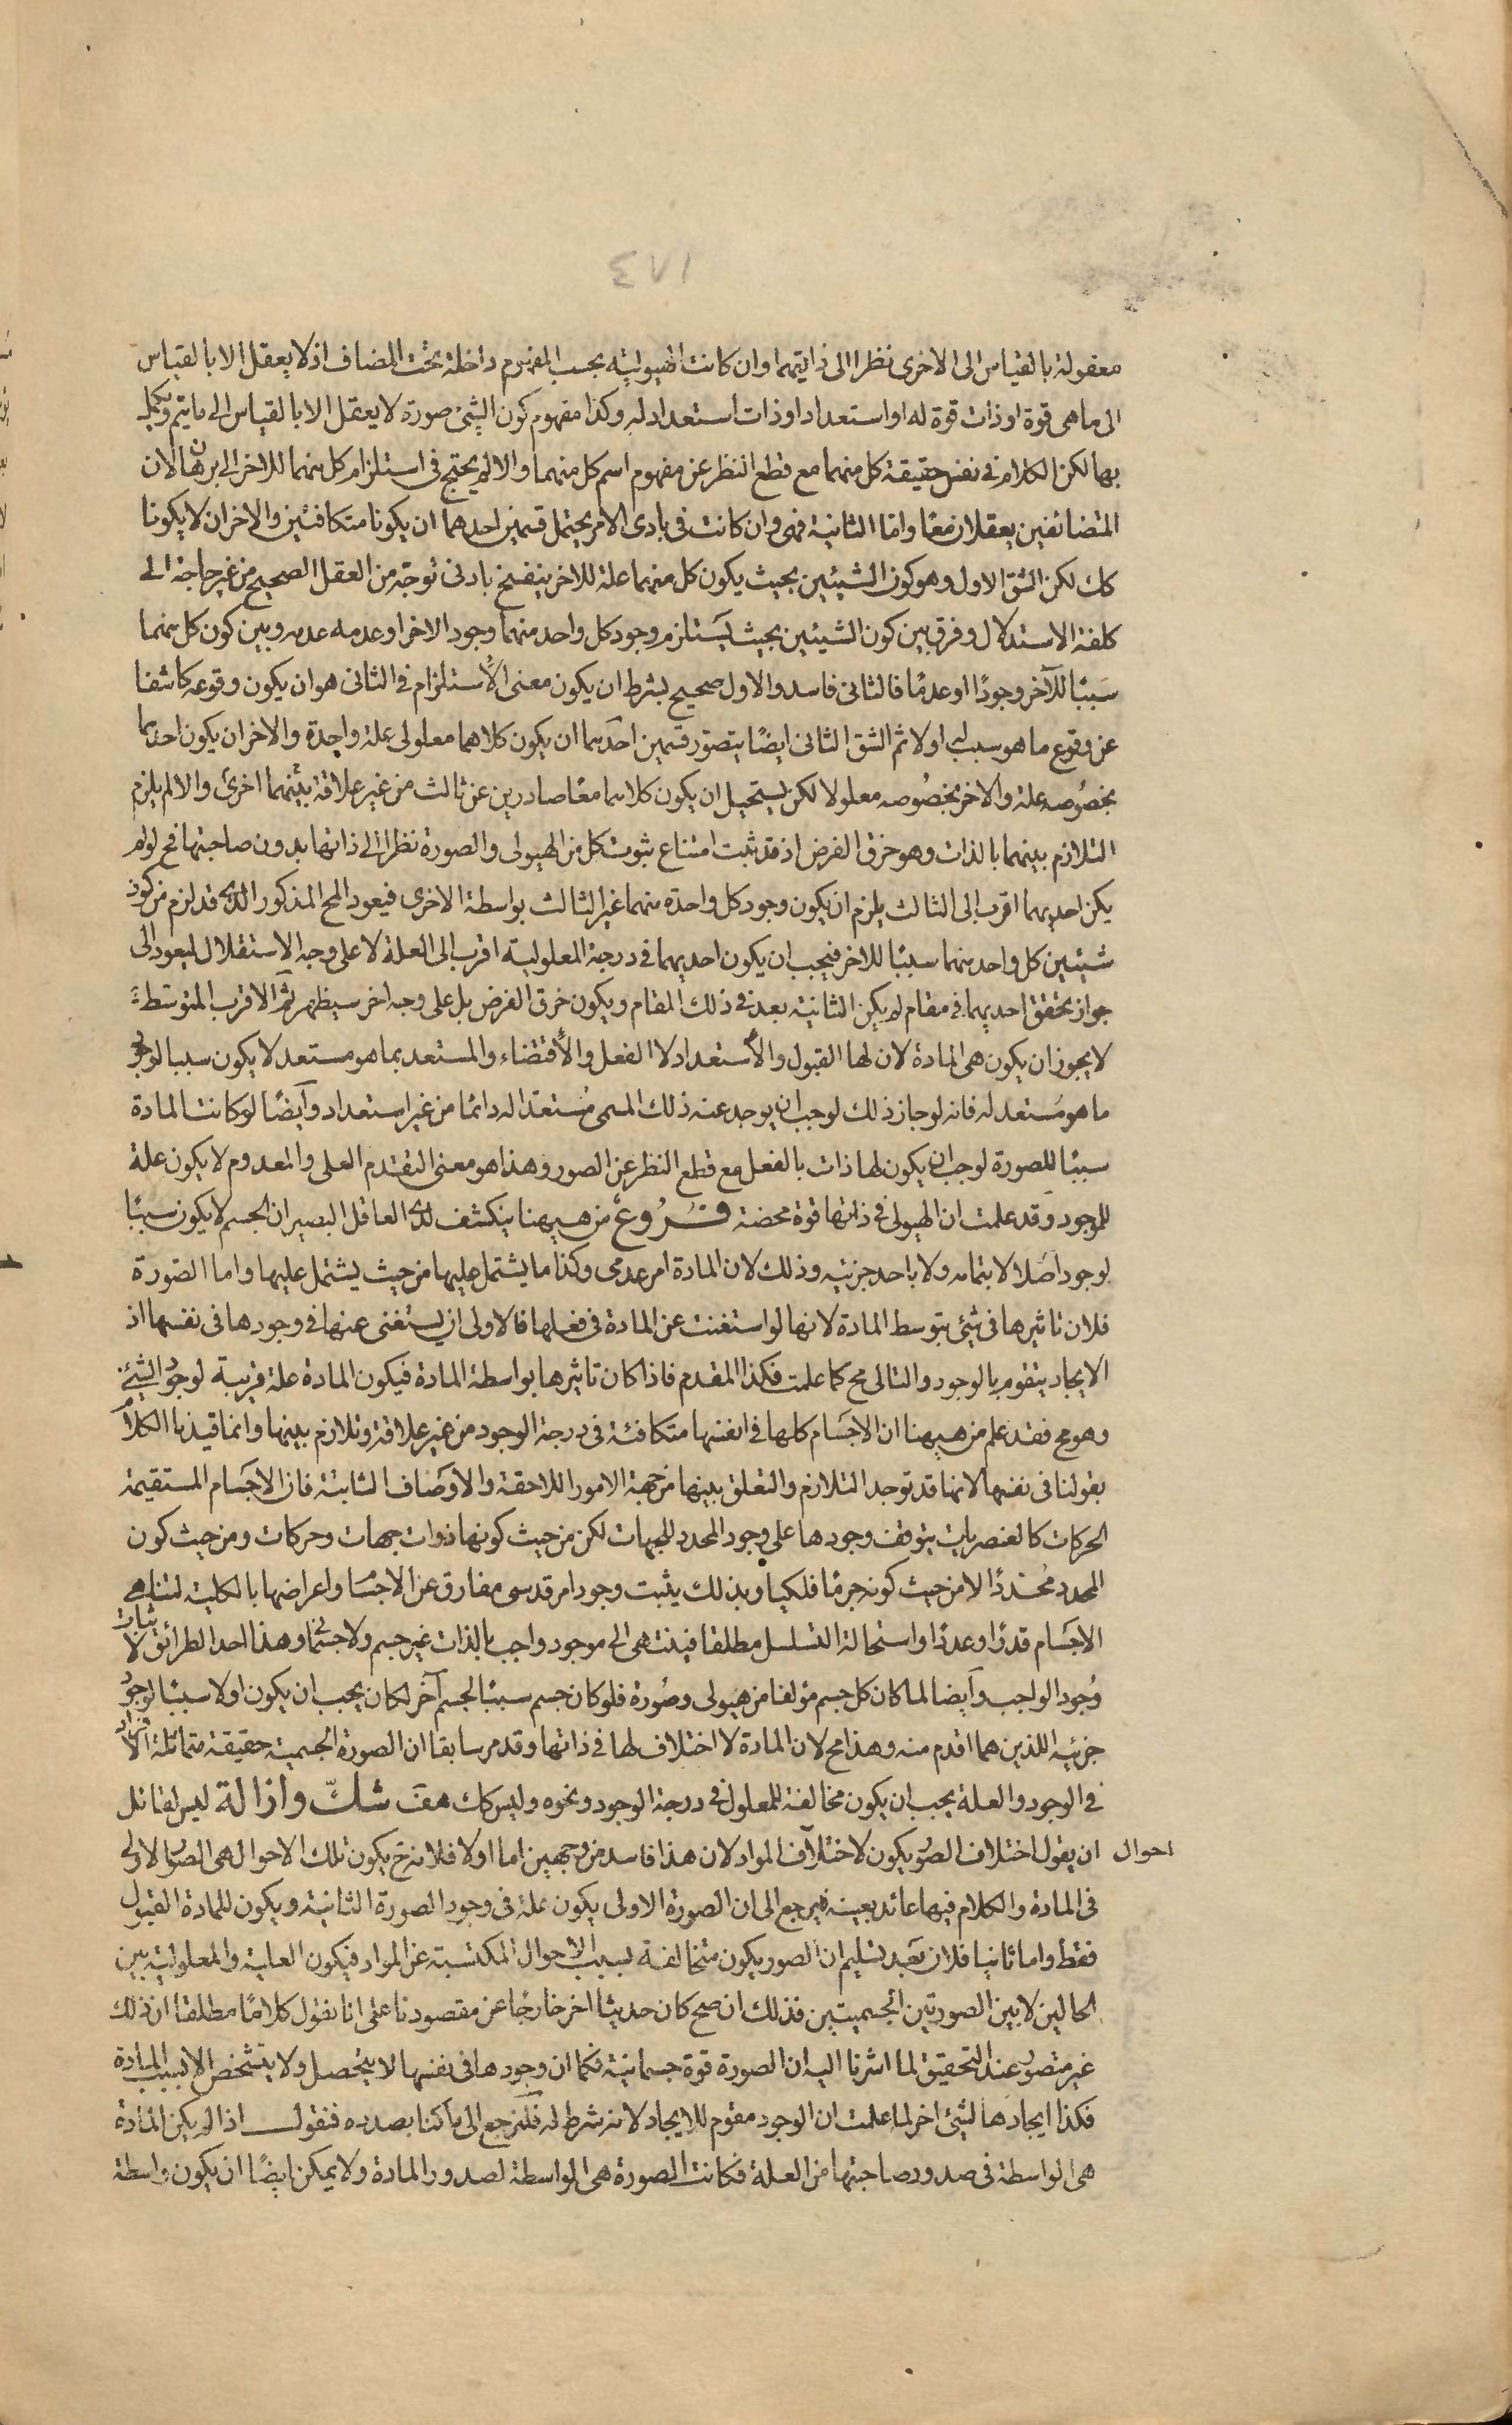 ٤٧١
معقولة بالقياس الى الاخرى نظرا الى ذاتيهما وان كانت الهيولية بحسب المفهوم داخلة تحت المضاف اذ لا يعقل الا بالقياس
الى ما هى قوة او ذات قوة له او استعداد او ذات استعداد له وكذا مفهوم كون الشئ صورة لا يعقل الا بالقياس الى ما يتم ويكمل
بها لكن الكلام فى نفس حقيقة كل منهما مع قطع النظر عن مفهوم اسم كل منهما والا لم يحتج فى استلزام كل منهما للاخر الى برهان لان
المتضائفين يعقلان معًا وامّا الثانية فهى وان كانت فى بادى الامر يحتمل قسمين احدهما ان يكونا متكافئين والاخر ان لا يكونا
كك لكن الشق الاول وهو كون الشيئين بحيث يكون كل منهما علة للاخر ينفسخ بادنى توجّه من العقل الصحيح من غير حاجة الى
كلفة الاستدلال وفرق بين كون الشيئين بحيث يستلزم وجود كل واحد منهما وجود الاخر او عدمه عدمه وبين كون كل منهما
سببًا للآخر وجودًا او عدمًا فالثانى فاسد والاول صحيح بشرط ان يكون معنى الاستلزام فى الثانى هو ان يكون وقوعه كاشفا
عن وقوع ما هو سبب له اولا ثم الشق الثانى ايضًا يتصوّر قسمين احدهما ان يكون كلاهما معلولى علة واحدة والاخر ان يكون احدهما
بخصوصه علة والاخر بخصوصه معلولا لكن يستحيل ان يكون كلاهما معًا صادرين عن ثالث من غير علاقة بينهما اخرى والا لم يلزم
التلازم بينهما بالذات وهو خرق الفرض اذ قد ثبت امتناع ثبوت كل من الهيولى والصورة نظرا الى ذاتها بدون صاحبتها فح لو لم
يكن احديهما اقرب الى الثالث يلزم ان يكون وجود كل واحدة منهما غير الثالث بواسطة الاخرى فيعود المح المذكور الذى قد لزم من كون
شيئين كل واحد منهما سببًا للاخر فيجب ان يكون احديهما فى درجة المعلولية اقرب الى العلة لا على وجه الاستقلال ليعود الى
جواز تحقق احديهما فى مقام لم يكن الثانية بعد فى ذلك المقام ويكون خرق الفرض بل على وجه اخر سيظهر ثم الاقرب المتوسّطة
لا يجوز ان يكون هى المادة لان لها القبول والاستعداد لا الفعل والاقتضاء والمستعد بما هو مستعد لا يكون سببا لوجود
ما هو مستعد له فانه لو جاز ذلك لوجب ان يوجد عنه ذلك المسمى مستعدّا له دائمًا من غير استعداد وايضًا لو كانت المادة
سببًا للصورة لوجب ان يكون لها ذات بالفعل مع قطع النظر عن الصور وهذا هو معنى التقدم العلى والمعدوم لا يكون علة
للموجود وقد علمت ان الهيولى فى ذاتها قوة محضة فروع من هيهنا ينكشف لدى العاقل البصير ان الجسم لا يكون سببًا
لوجود اصلا لا بتمامه ولا باحد جزئيه وذلك لان المادة امر عدمى وكذا ما يشتمل عليها من حيث يشتمل عليها واما الصورة
فلان تاثيرها فى شئ بتوسط المادة لانها لو استغنت عن المادة فى فعلها فالاولى ان يستغنى عنها فى وجودها فى نفسها اذ
الايجاد يتقوم بالوجود والتالى مح كما علمت فكذا المقدم فاذا كان تاثيرها بواسطة المادة فيكون المادة علة قريبة لوجود الشئ
وهو مح فقد علم من هيهنا ان الاجسام كلها فى انفسها متكافئة فى درجة الوجود من غير علاقة وتلازم بينها وانما قيدنا الكلام
بقولنا فى نفسها لانها قد توجد التلازم والتعلق بينها من جهة الامور اللاحقة والاوصاف الثابتة فان الاجسام المستقيمة
الحركات كالعنصريات يتوقف وجودها على وجود المحدد للجهات لكن من حيث كونها ذوات جهات وحركات ومن حيث كون
المحدد محددًا لا من حيث كونه جرمًا فلكيا وبذلك يثبت وجود امر قدسى مفارق عن الاجسام واعراضها بالكلية لتناهى
الاجسام قدرًا وعددًا واستحالة التسلسل مطلقا فينتهى الى موجود واجب بالذات غير جسم ولا جسمانى وهذا احد الطرائق لاثبات
وجود الواجب وايضا لما كان كل جسم مؤلفا من هيولى وصورة فلو كان جسم سببًا لجسم آخر لكان يجب ان يكون اولا سببًا لوجود
جزئيه اللذين هما اقدم منه وهذا مح لان المادة لا اختلاف لها فى ذاتها وقد مر سابقا ان الصورة الجسمية حقيقة متماثلة الافراد
فى الوجود والعلة يجب ان يكون مخالفة للمعلول فى درجة الوجود ونحوه وليس كك هف شكّ وازالة ليس لقائل
ان يقول اختلاف الصور يكون لاختلاف المواد لان هذا فاسد من وجهين اما اولا فلانه ح يكون تلك الاحوال هى الصور الاولى
احوال
فى المادة والكلام فيها عائد بعينه فيرجع الى ان الصورة الاولى يكون علة فى وجود الصورة الثانية ويكون للمادة القبول
فقط واما ثانيا فلان بعد تسليم ان الصور يكون متخالفة بسبب الاحوال المكتسبة عن المواد فيكون العلية والمعلولية بين
الحالين لا بين الصورتين الجسميتين فذلك ان صح كان حديثا اخر خارجًا عن مقصودنا على انا نقول كلامًا مطلقا ان ذلك
غير متصور عند التحقيق لما اشرنا اليه ان الصورة قوة جسمانية فكما ان وجودها فى نفسها لا يتحصل ولا يتشخص الا بسبب المادة
فكذا ايجادها لشئ اخر لما علمت ان الوجود مقوم للايجاد لانه شرط له فلنرجع الى ما كنا بصدده فنقول اذا لم يكن المادة
هى الواسطة فى صدور صاحبتها من العلة فكانت الصورة هى الواسطة لصدور المادة ولا يمكن ايضًا ان يكون واسطة